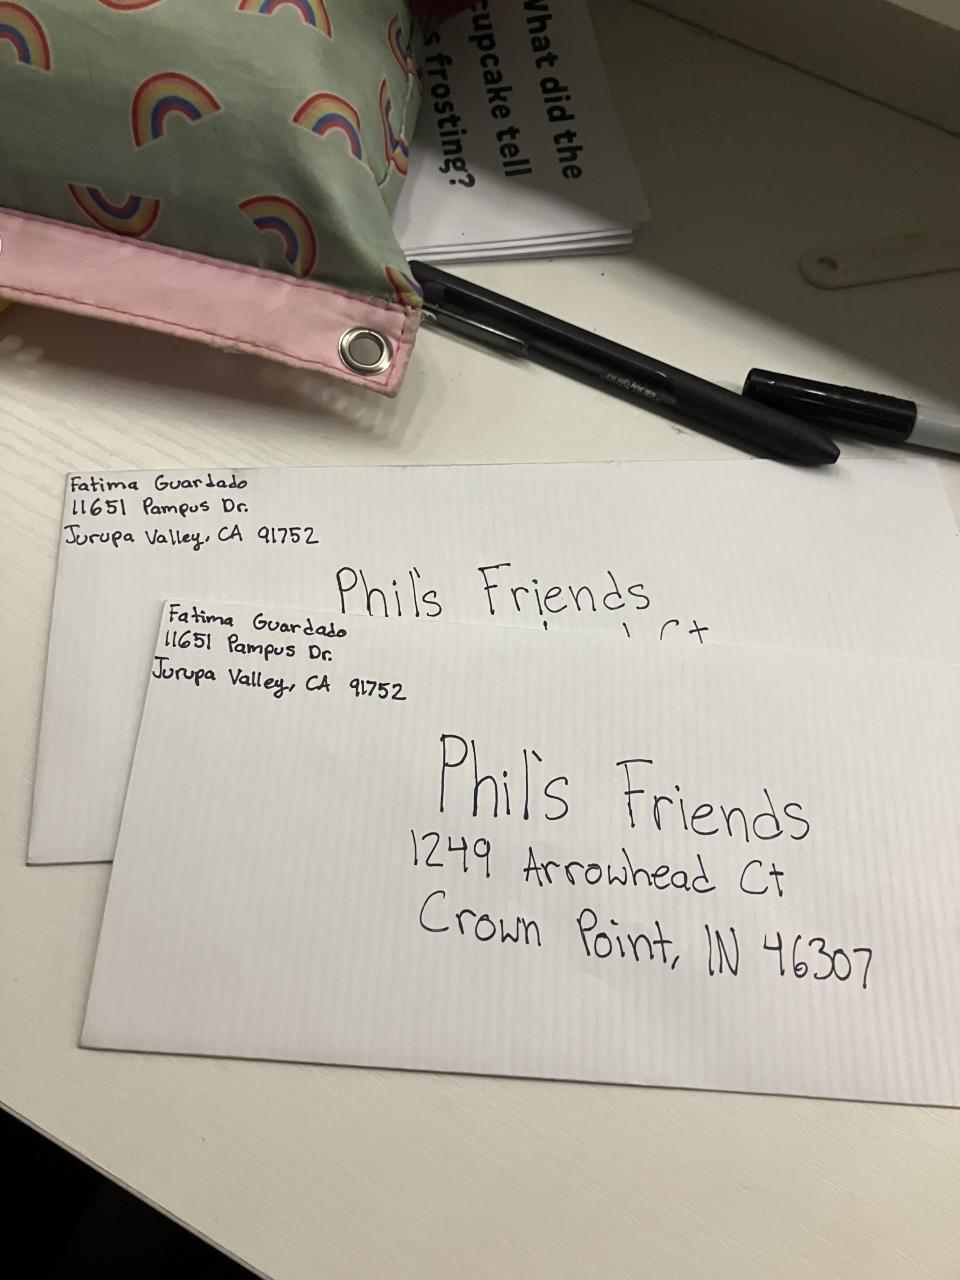 What did the
cupcake tell
s frosting?
Fatima Guardado
11651 Pampus Dr.
Jurupa Valley, CA 91752
Phil's Friends
Ct
Fatima Guardado
11651 Pampus Dr.
Jurupa Valley, CA 91752
Phil's Friends
1249 Arrowhead Ct
Crown Point, IN 46307